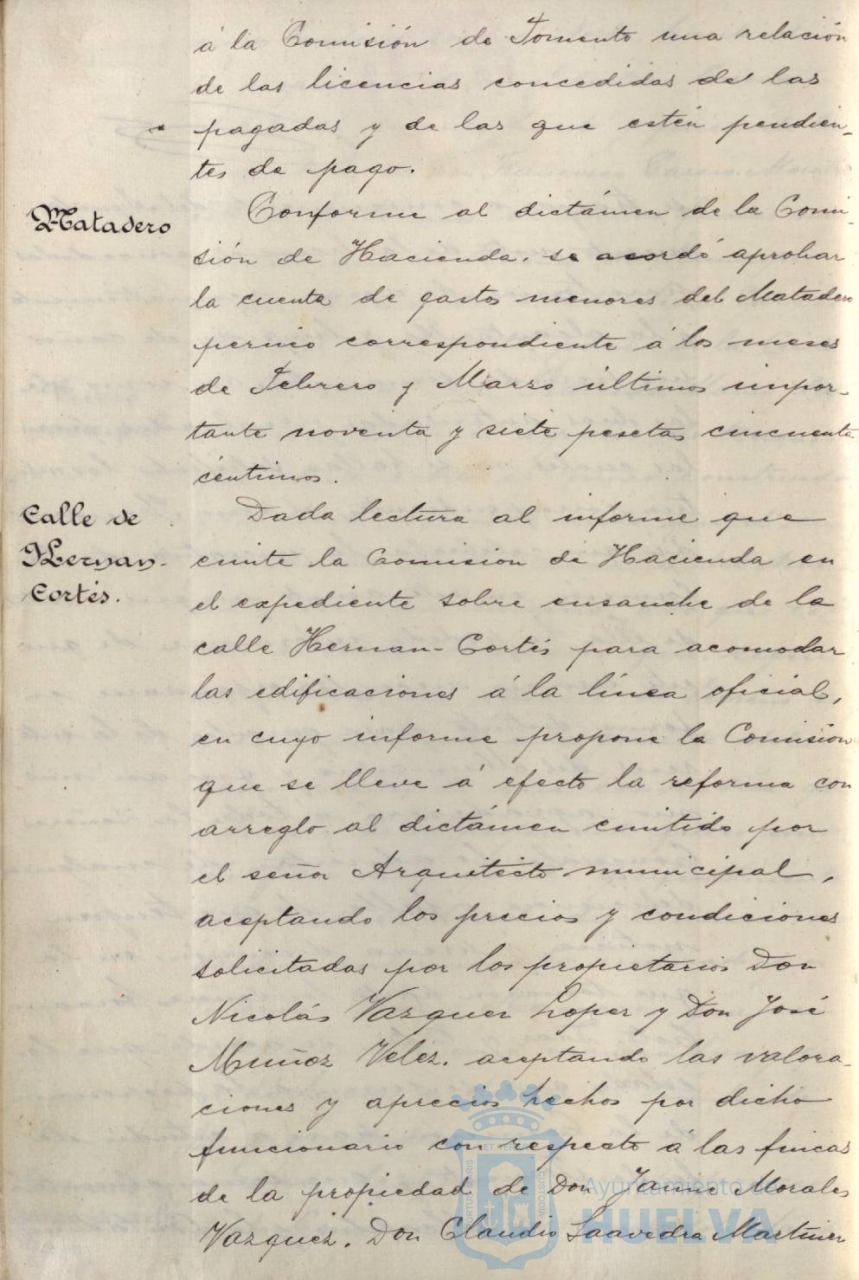 á la Comisión de Fomento una relación
de las licencias concedidas de las
pagadas y de las que estén pendien-
tes de pago.
Matadero
Conforme al dictámen de la Comi
sión de Hacienda. se acordó aprobar
la cuenta de gastos menores del Matadero
perneo correspondiente á los meses
de Febrero y Marzo últimos impor-
tante noventa y siete pesetas cincuenta
céntimos.
Calle de
Hernan-
Cortés.
Dada lectura al informe que
emite la Comision de Hacienda en
el expediente sobre ensanche de la
calle Hernan-Cortés para acomodar
las edificaciones á la línea oficial,
en cuyo informe propone la Comision
que se lleve á efecto la reforma con
arreglo al dictámen emitido por
el señor Arquitecto municipal,
aceptando los precios y condiciones
solicitadas por los propietarios Don
Nicolás Vazquez Lopez y Don José
Muñoz Velez. aceptando las valora-
ciones y aprecios hechos por dicho
funcionario con respecto á las fincas
de la propiedad de Don Jaime Morales
Vazquez. Don Claudio Saavedra Martinez
Ayuntamiento de
HUELVA